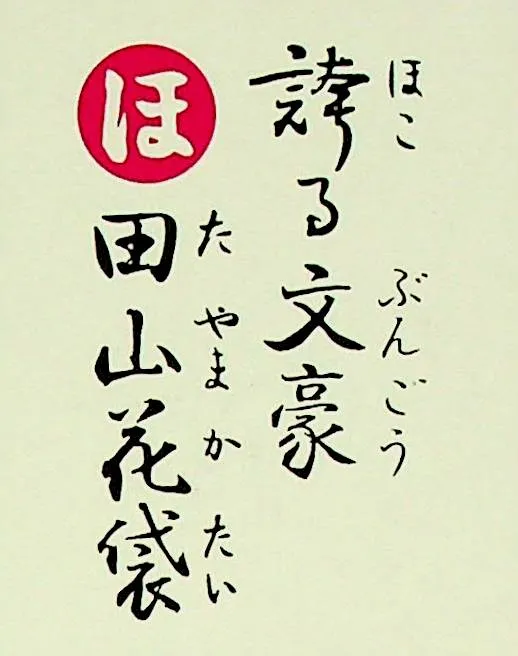 ほこ ぶんごう
誇る文豪
ほ
たやまかたい
田山花袋